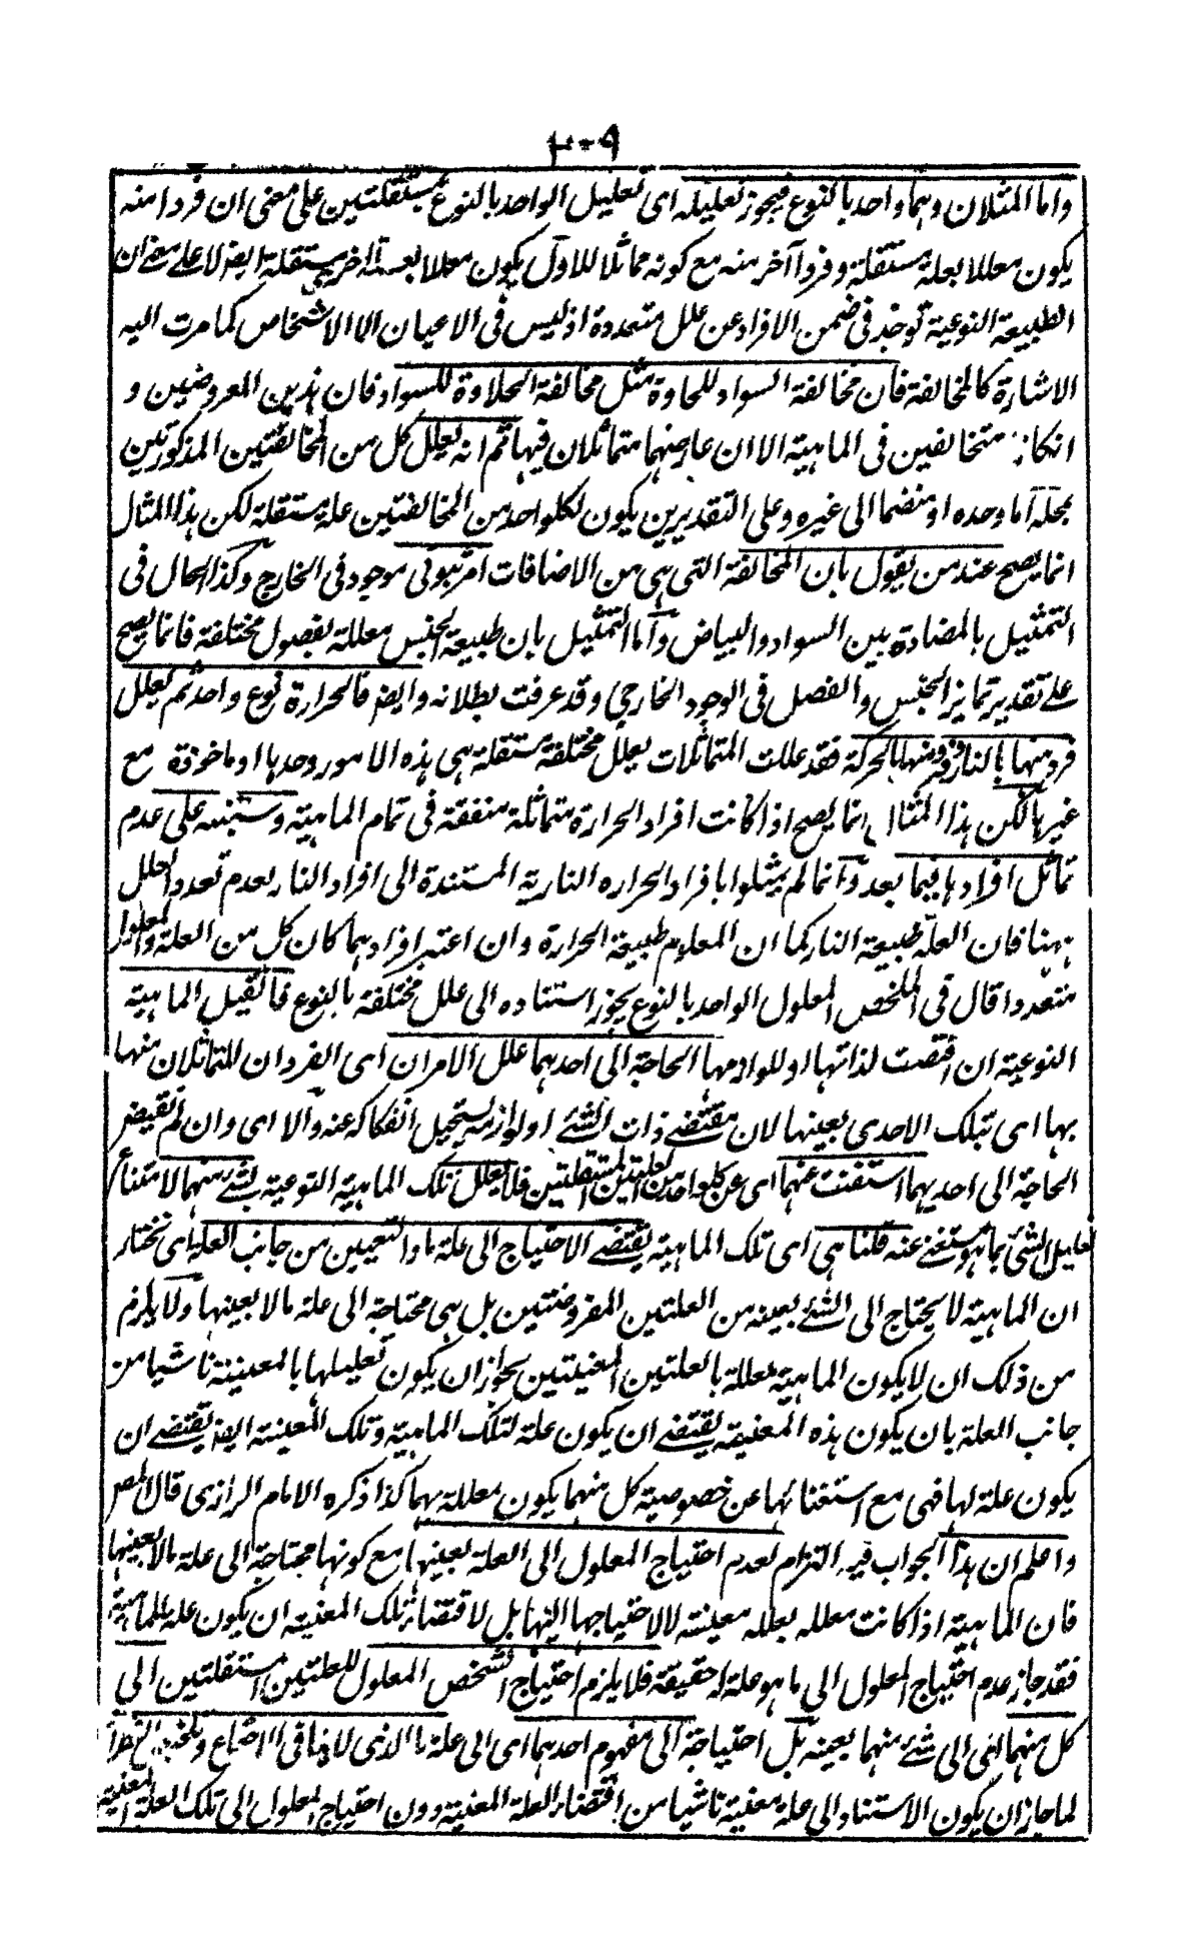 ٢٠٩
واما المثلان وهما واحد بالنوع فيجوز تعليله اى تعليل الواحد بالنوع بمستقلتين على معنى ان فردا منه
يكون معللا بعلة مستقلة وفردا آخر منه مع كونه مماثلا للاول يكون معللا بعلة اخرى مستقلة ايضا لا على معنى ان
الطبيعة النوعية توجد فى ضمن الافراد عن علل متعددة اذ ليس فى الاعيان الا الاشخاص كما مرت اليه
الاشارة كالمخالفة فان مخالفة السواد للحلاوة مثل مخالفة الحلاوة للسواد فان هذين المعروضين و
انكانا متخالفين فى الماهية الا ان عارضهما متماثلان فيها ثم انه يعلل كل من المخالفتين المذكورتين
بمحله اما وحده او منضما الى غيره وعلى التقديرين يكون لكلواحد من المخالفتين علة مستقلة لكن هذا المثال
انما يصح عند من يقول بان المخالفة التى هى من الاضافات امر ثبوتى موجود فى الخارج وكذا الحال فى
التمثيل بالمضادة بين السواد والبياض واما التمثيل بان طبيعة الجنس معللة بفصول مختلفة فانما يصح
على تقدير تمايز الجنس والفصل فى الوجود الخارجى وقد عرفت بطلانه وايضا فالحرارة نوع واحد ثم يعلل
فرد منها بالنار وفرد منها بالحركة فقد عللت المتماثلات بعلل مختلفة مستقلة هى هذه الامور وحدها او ماخوذة مع
غيرها لكن هذا المثال انما يصح اذا كانت افراد الحرارة متماثلة متفقة فى تمام الماهية وستنبه على عدم
تماثل افرادها فيما بعد وانما لم يمثلوا بافراد الحراره النارية المستندة الى افراد النار لعدم تعدد العلل
ههنا فان العلة طبيعة النار كما ان المعلول طبيعة الحرارة وان اعتبر افرادهما كان كل من العلة والمعلول
متعددا قال فى الملخص المعلول الواحد بالنوع يجوز استناده الى علل مختلفة بالنوع فان قيل الماهية
النوعية ان اقتضت لذاتها او للوازمها الحاجة الى احدهما علل الامران اى الفردان المتماثلان منها
بها اى بتلك الاحدى بعينها لان مقتضى ذات الشئ او لوازمه يستحيل انفكاكه عنه والا اى وان لم تقتض
الحاجة الى احديهما استغنت عنهما اى عن كلواحد من العلتين المستقلتين فلا يعلل تلك الماهية النوعية بشئ منهما لامتناع
تعليل الشئ بما هو مستغن عنه قلنا هى اى تلك الماهية يقتضى الاحتياج الى علة ما والتعيين من جانب العلة اى نختار
ان الماهية لا يحتاج الى الشئ بعينه من العلتين المفروضتين بل هى محتاجة الى علة ما لا بعينها ولا يلزم
من ذلك ان لا يكون الماهية معللة بالعلتين المعينتين بجواز ان يكون تعليلها بالمعينة ناشيا من
جانب العلة بان يكون هذه المعنية يقتضى ان يكون علة لتلك الماهية وتلك المعينة ايضا يقتضى ان
يكون علة لها فهى مع استغنائها عن خصوصية كل منهما يكون معللة بهما كذا ذكره الامام الرازى قال المصنف
واعلم ان هذا الجواب فيه التزام لعدم احتياج المعلول الى العلة بعينها مع كونها محتاجة الى علة ما لا بعينها
فان الماهية اذا كانت معلله بعلة معينة لا لاحتياجها اليها بل لاقتضاء تلك المعنية ان يكون علة للماهية
فقد جاز عدم احتياج المعلول الى ما هو علة له حقيقة فلا يلزم احتياج الشخص المعلول للعلتين المستقلتين الى
كل منهما اعنى الى شئ منهما بعينه بل احتياجه الى مفهوم احدهما اى الى علة ما الذى لا ينافى الاجتماع
لما جاز ان يكون الاستناد الى علة معنية ناشيا من اقتضاء العلة المعنية دون احتياج المعلول الى تلك العلة المعنية